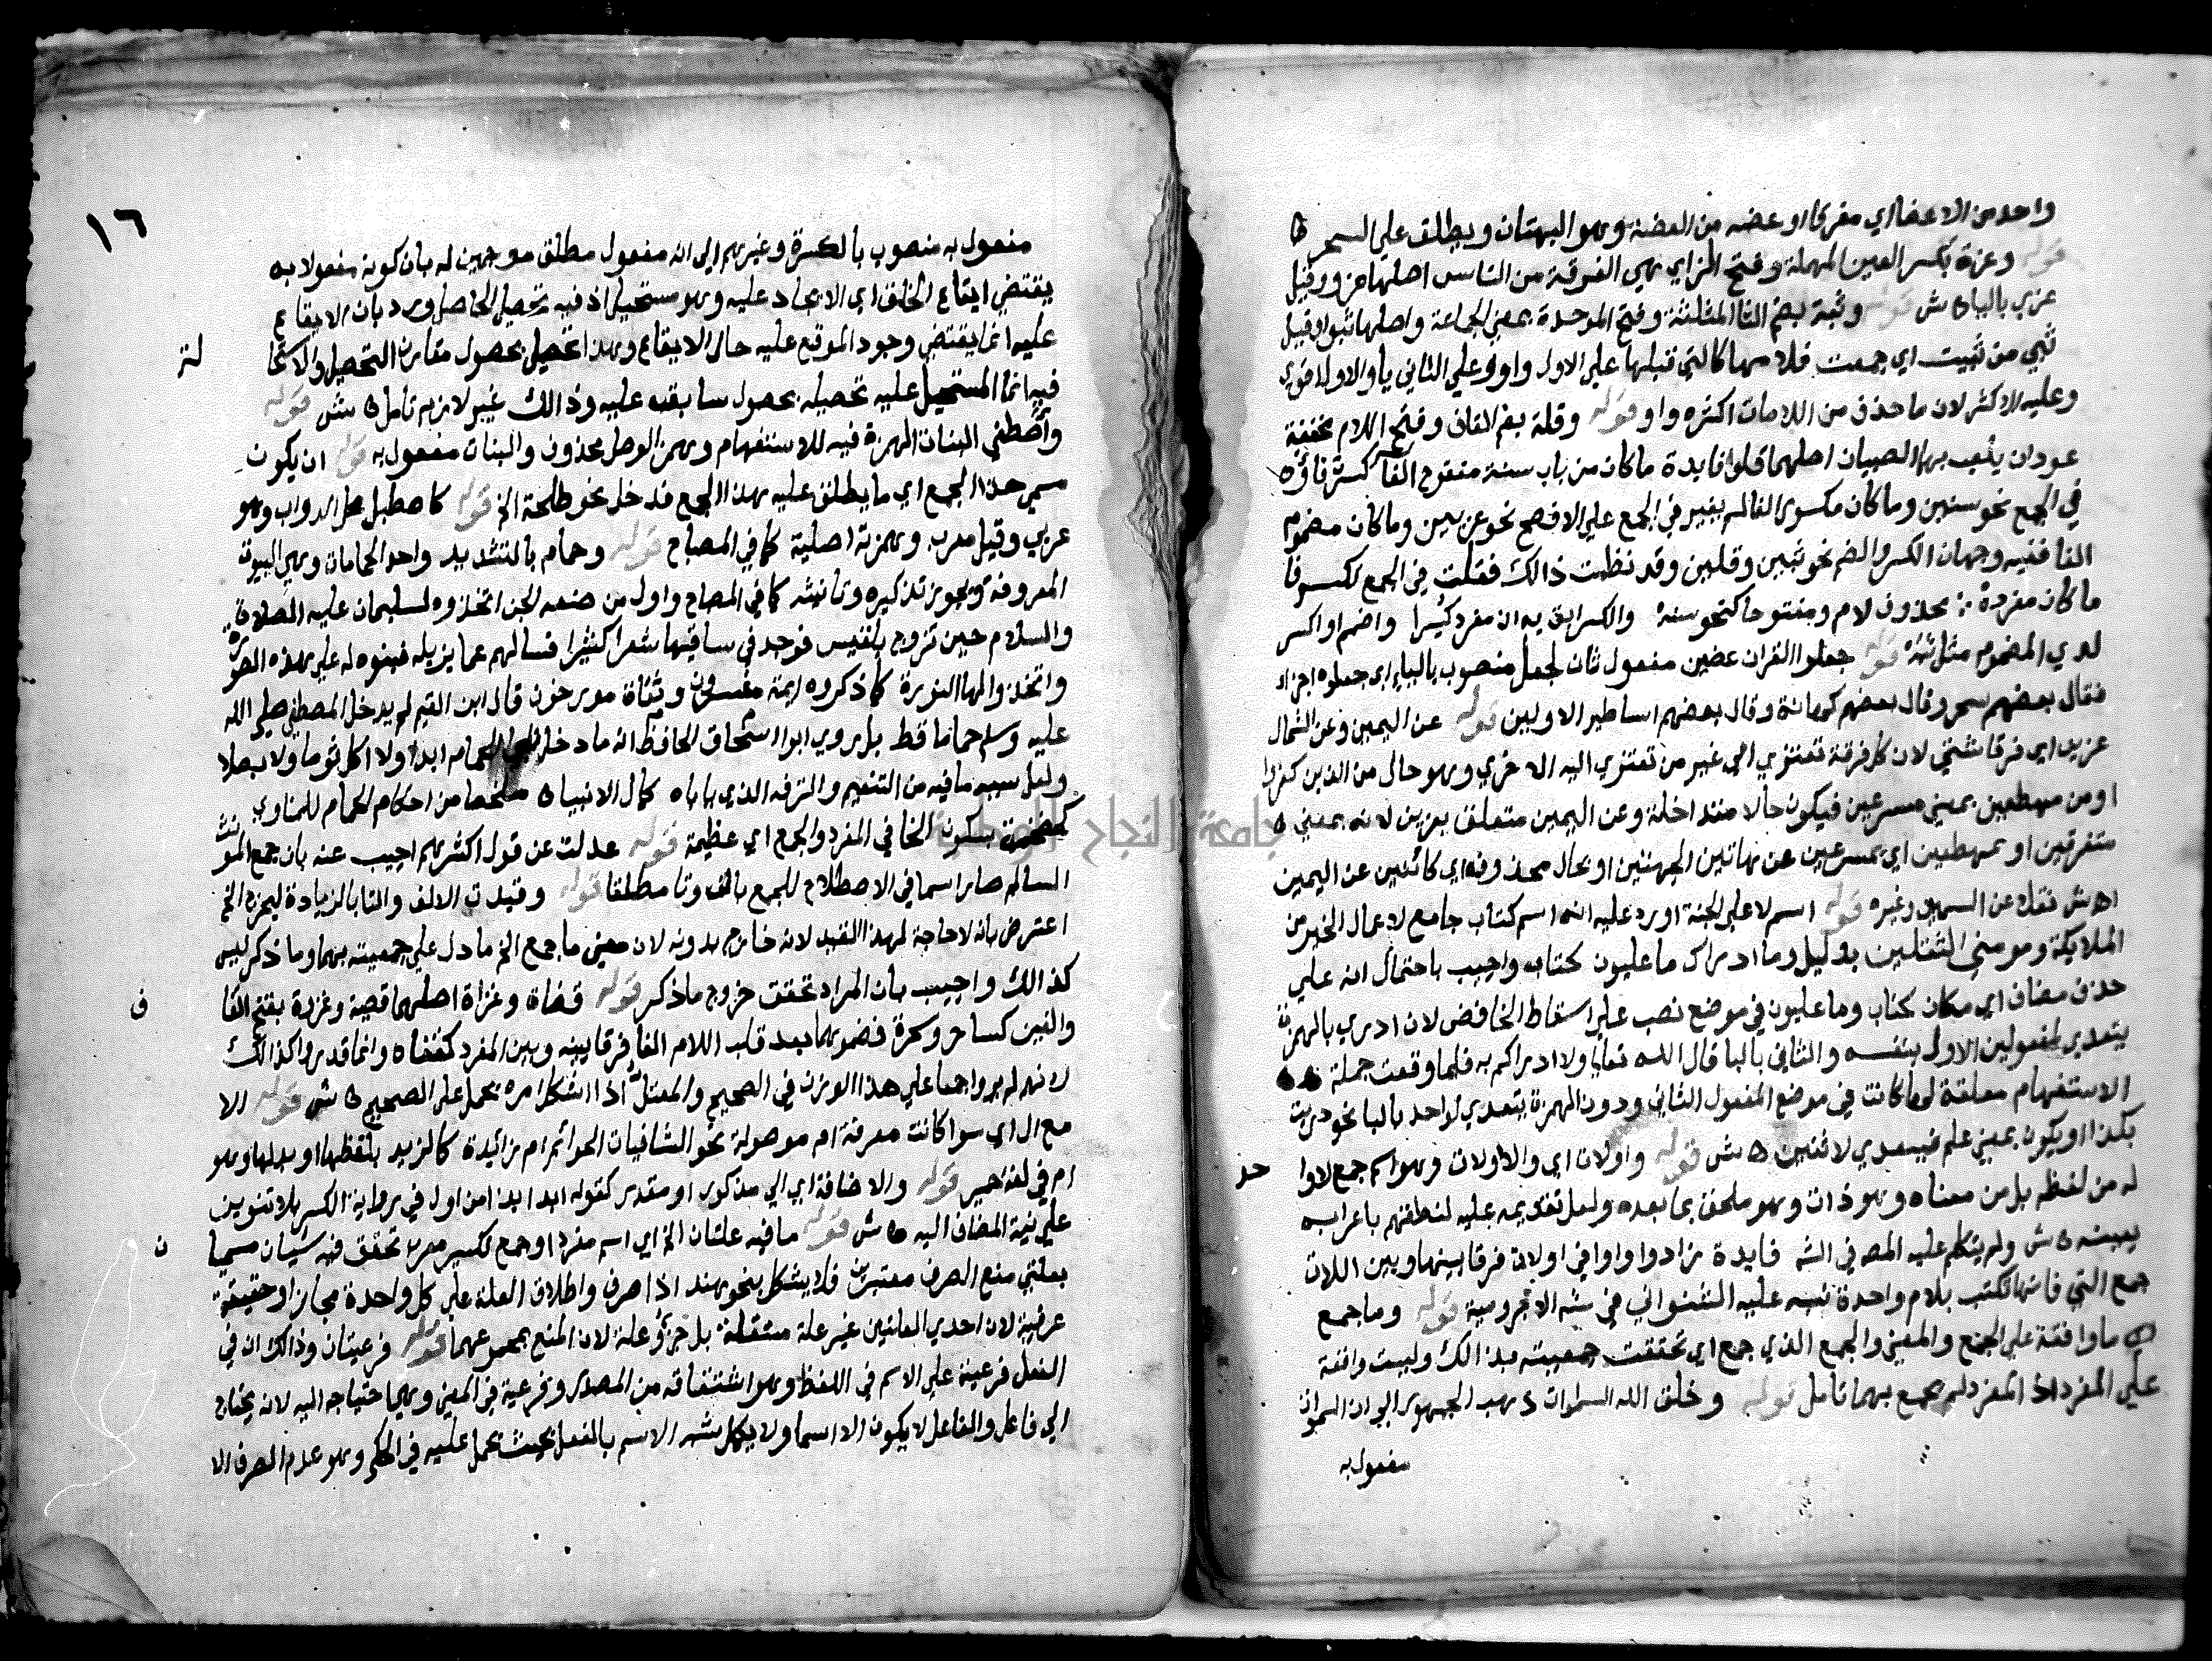 واحد من الاعضا اي مفرقا او عضه من العضة وهو البهتان ويطلق علي السحر ه
قوله وعزة بكسر العين المهملة وفتح الزاي هي الفرقة من الناس اصلها عزو وقيل
عزي باليا ه ش قوله وثبة بضم الثا المثلثة وفتح الموحدة بمعني الجماعة واصلها ثبو وقيل
ثبي من ثبيت اي جمعت فلامها كالتي قبلها علي الاول واو وعلي الثاني يا والاول اقوي
وعليه الاكثر لان ما حذف من اللامات اكثره واو قوله وقلة بضم القاف وفتح اللام مخففة
عودان يلعب بهما الصبيان اصلها قلو فايدة ما كان من باب سنة مفتوح الفا كسرت فاؤه
في الجمع نحو سنين وما كان مكسور الفا لم يغير في الجمع علي الافصح نحو عزين وما كان مضموم
الفا ففيه وجهان الكسر والضم نحو ثبين وقلين وقد نظمت ذالك فقلت في الجمع تكسر فا
ما كان مفرده محذوف لام ومفتوحا كنحو سنه والكسر ابق به ان مفرد كسرا واضمم او اكسر
لدي المضموم مثل ثبه قوله جعلوا القران عضين مفعول ثان لجعل منصوب بالياء اي جعلوه اجزاء
فقال بعضهم سحر وقال بعضهم كهانة وقال بعضهم اساطير الاولين قوله عن اليمين وعن الشمال
عزين اي فرقا شتي لان كل فرقة تعتزي الي غير من تعتزي اليه الاخري وهو حال من الذين كفروا
او من مهطعين بمعني مسرعين فيكون حالا متداخلة وعن اليمين متعلق بعزين لانه بمعني ه
متفرقين او بمهطعين اي بمسرعين عن هاتين الجهتين او بحال محذوفه اي كائنين عن اليمين
اه ش نقلا عن السمين وغيره قوله اسم لاعلي الجنة اورد عليه انه اسم كتاب جامع لاعمال الخير من
الملايكة ومومني الثقلين بدليل وما ادراك ما عليون كتاب واجيب باحتمال انه علي
حذف مضاف اي مكان كتاب وما عليون في موضع نصب علي اسقاط الخافض لان ادري بالهمزة
يتعدي لمفعولين الاول بنفسه والثاني بالبا قال الله تعالي ولا ادراكم به فلما وقعت جملة
الاستفهام معلقة لها كانت في موضع المفعول الثاني ودون الهمزة يتعدي لواحد بالبا نحو دريت
بكذا او يكون بمعني علم فيتعدي لاثنين ه ش قوله واولات اي والاولات وهو اسم جمع لاوا حد
له من لفظه بل من معناه وهو ذات وهو ملحق بما بعده ولعل تقديمه عليه لنطقهم باعرابه
بعينه ه ش ولم يتكلم عليه المصـ في الشـ فايدة زادوا واوا في اولات فرقا بينها وبين اللات
جمع التي فانها تكتب بلام واحدة نبه عليه الشنواني في شـ الاجرومية قوله وما جمع
ه ما واقعة علي الجمع والمعني والجمع الذي جمع اي تحققت جمعيته بذالك وليست واقعة
علي المفرد اذ المفرد لم يجمع بهما تامل قوله وخلق الله السموات ذهب الجمهور الي ان السموات
مفعول به
١٦
مفعول به منصوب بالكسرة وغيرهم الي انه مفعول مطلق موجهين له بان كونه مفعولا به
يقتضي ايقاع الخلق اي الايجاد عليه وهو مستحيل اذ فيه تحصيل الحاصل ورد بان الايقاع
عليه انما يقتضي وجود الموقع عليه حال الايقاع وهذا تحصيل بحصول مقارن التحصيل ولا استحا لة
فيه انما المستحيل عليه تحصيله بحصول سابقه عليه وذالك غير لازم تامل ه ش قوله
واصطفي البنات الهمزة فيه للاستفهام وهمز الوصل محذوف والبنات مفعول به قوله ان يكون
سمي هذا الجمع اي ما يطلق عليه هذا الجمع فدخل نحو طلحة الخ قوله كاصطبل محل الدواب وهو
عربي وقيل معرب وهمزته اصلية كما في المصباح قوله وحمام بالتشديد واحد الحمامات وهي البيوت
المعروفة ويجوز تذكيره وتانيثه كما في المصباح واول من صنعه الجن اتخذوه لسليمان عليه الصلاة
والسلام حين تزوج بلقيس فوجد في ساقيها شعرا كثيرا فسالهم عما يزيله فبنوه له علي هذه الصورة
واتخذوا لها النورة كما ذكروه ايمة مفسرون وثقاة مورخون قال ابن القيم لم يدخل المصطفي صلي الله
عليه وسلم حماما قط بل روي ابو اسحاق الحافظ انه ما دخل نبي الحمام ابدا ولا اكل ثوما ولا بصلا
ولعل سببه ما فيه من التنعيم والترفه الذي ياباه كمال الانبياء ملخصا من احكام الحمام للمناوي
كضخمة بسكون الخا في المفرد والجمع اي عظيمة قوله عدلت عن قول اكثرهم اجيب عنه بان جمع المونث
السالم صار اسما في الاصطلاح للجمع بالف وتا مطلقا قوله وقيدت الالف والتا بالزيادة ليخرج الخ
اعترض بانه لا حاجة لهذا القيد لانه خارج بدونه لان معني ما جمع الخ ما دل علي جمعيته بهما وما ذكر ليس
كذالك واجيب بان المراد تحقق خروج ما ذكر قوله قضاة وغزاة اصلهما قضية وغزوة بفتح القا ف
والغين كساحر وسحرة فضموهما بعد قلب اللام الفا فرقا بينه وبين المفرد كفتاه وانما قدروا كذالك
لانهم لم يروا جمعا علي هذا الوزن في الصحيح والمعتل اذا اشكل امره يحمل علي الصحيح ه ش قوله الا
مع ال اي سوا كانت معرفة ام موصولة نحو الشافيات الحوائم ام زائدة كاليزيد بلفظها او بدلها وهو
ام في لغة حمير قوله والاضافة اي الي مذكور او مقدر كقوله ابدا بذا من اول في رواية الكسر بلا تنوين
علي نية المضاف اليه ه ش قوله ما فيه علتان الخ اي اسم مفرد او جمع تكسير معرب تحقق فيه شيان مسميا ن
بعلتي منع الصرف معتبران فلا يشكل بنحو هند اذا صرف واطلاق العلة علي كل واحدة مجاز او حقيقة
عرفية لان احدي العلتين غير علة مستقلة بل جزؤ علة لان المنع بمجموعهما قوله فرعيتان وذالك ان في
الفعل فرعية علي الاسم في اللفظ وهو اشتقاقه من المصدر وفرعية في المعني وهي احتياجه اليه لانه يحتاج
الي فاعل والفاعل لا يكون الا اسما ولا يكمل شبه الاسم بالفعل بحيث يحمل عليه في الحكم وهو عدم الصرف الا
جامعة النجاح الوطنية